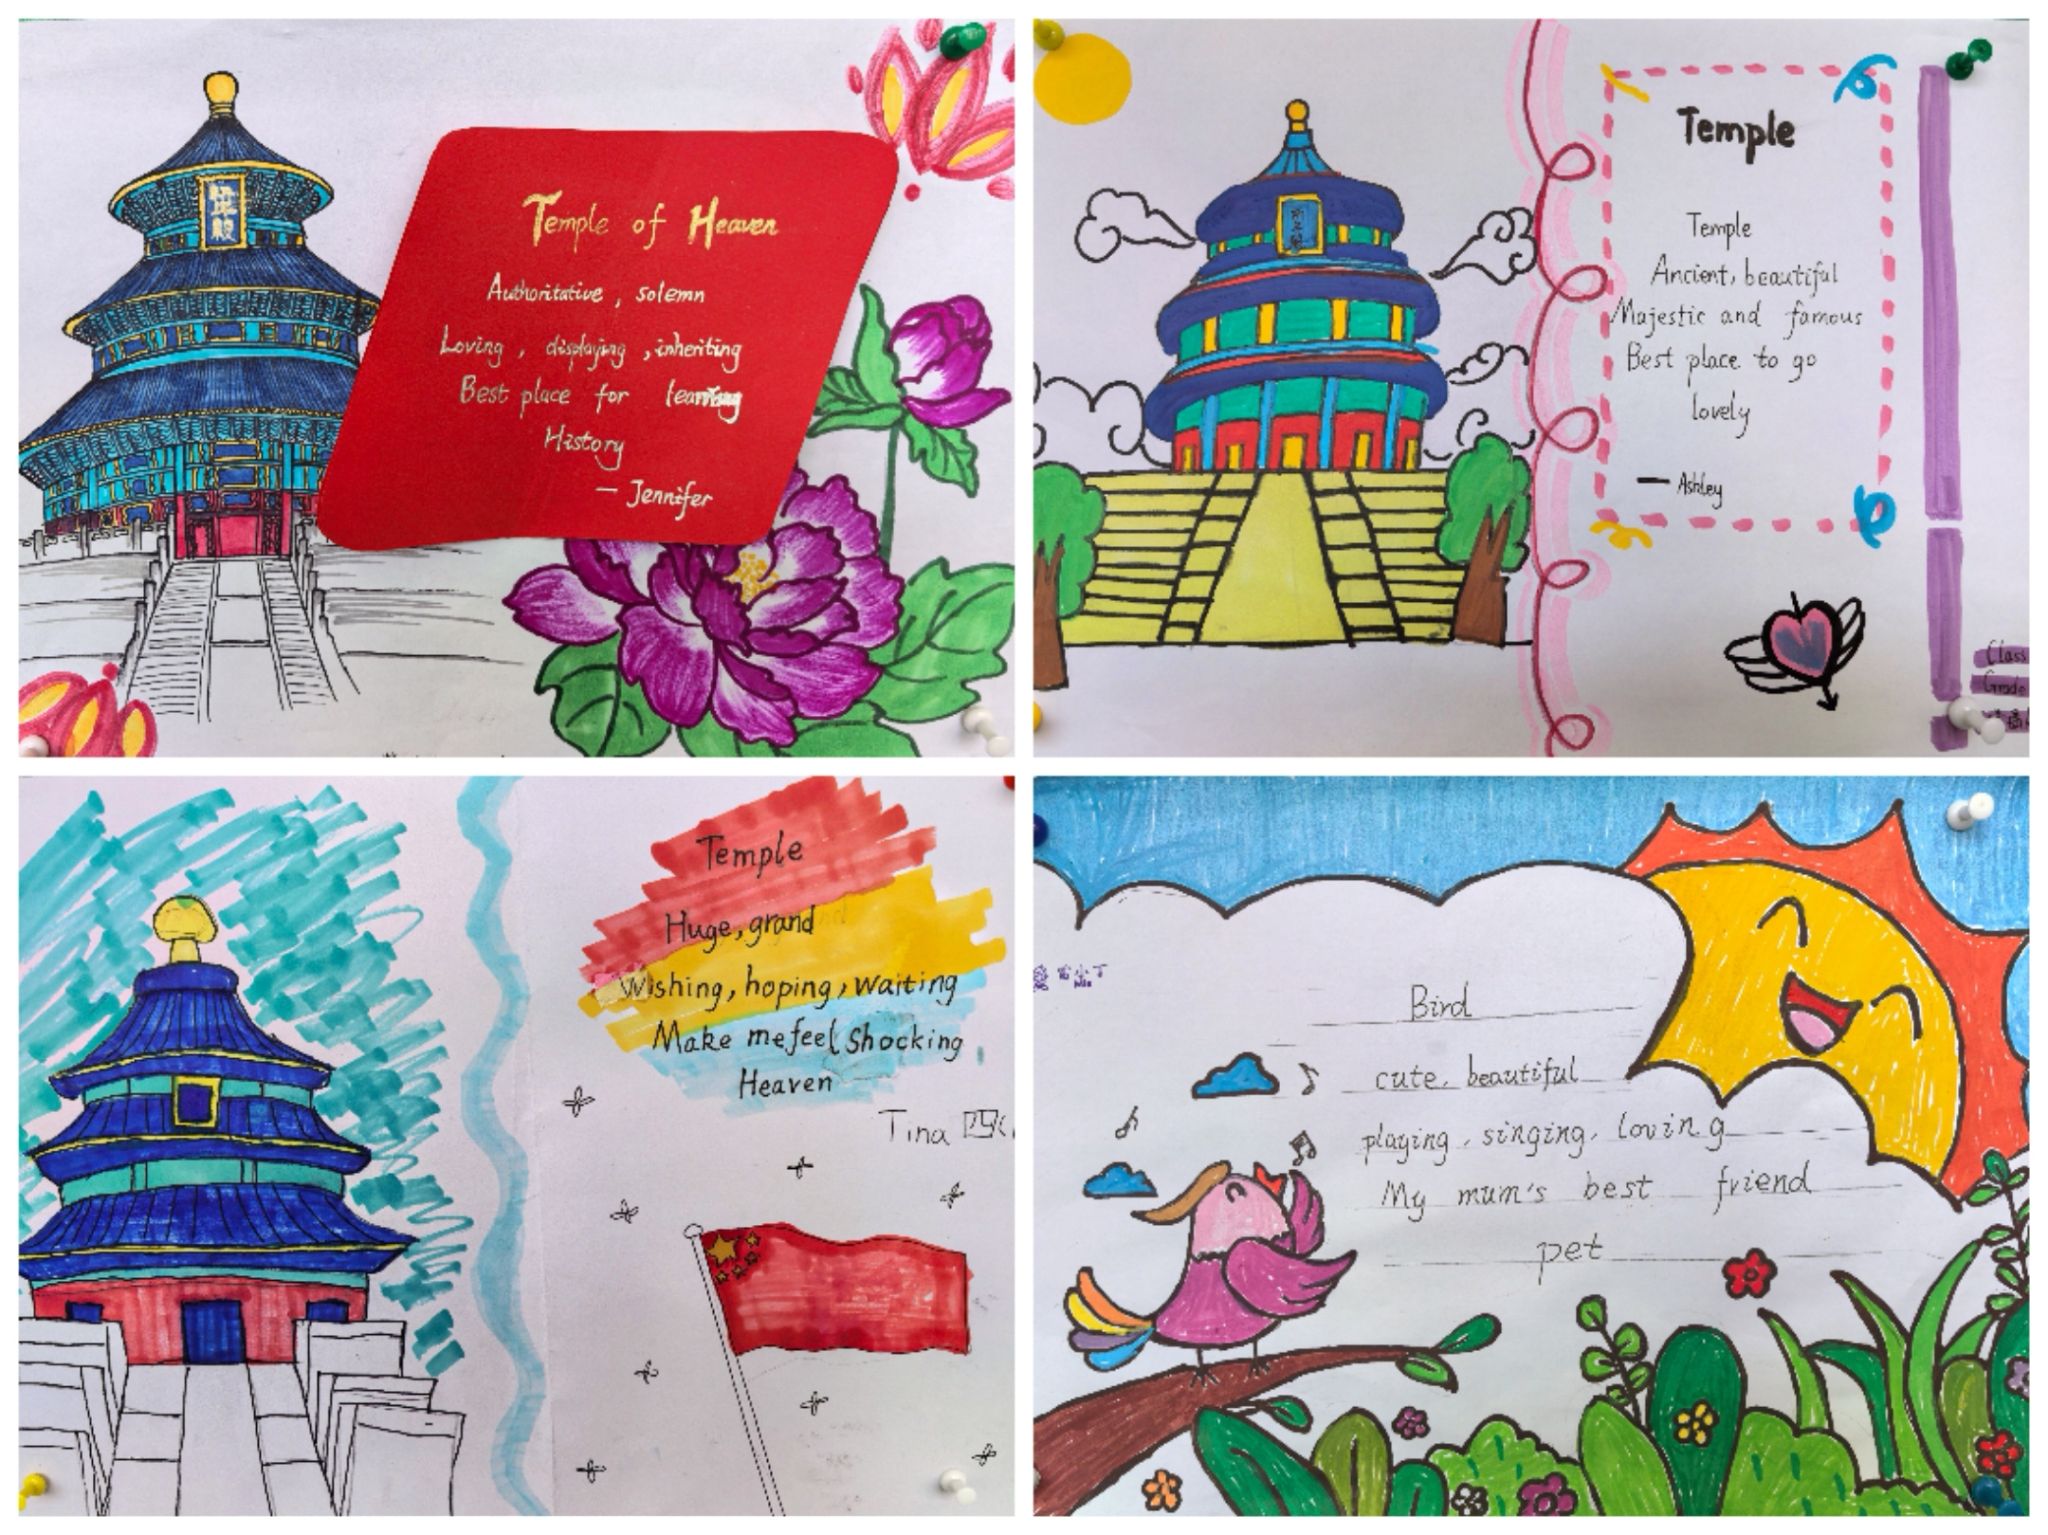 Temple of Heaven
Authoritative, solemn
Loving, displaying, inheriting
Best place for learning
History
— Jennifer
Temple
Temple
Ancient, beautiful
Majestic and famous
Best place to go
lovely
— Ashley
Class
Grade
Temple
Huge, grand
Wishing, hoping, waiting
Make me feel shocking
Heaven
Tina 四
Bird
cute, beautiful
playing, singing, loving
My mum's best friend
pet